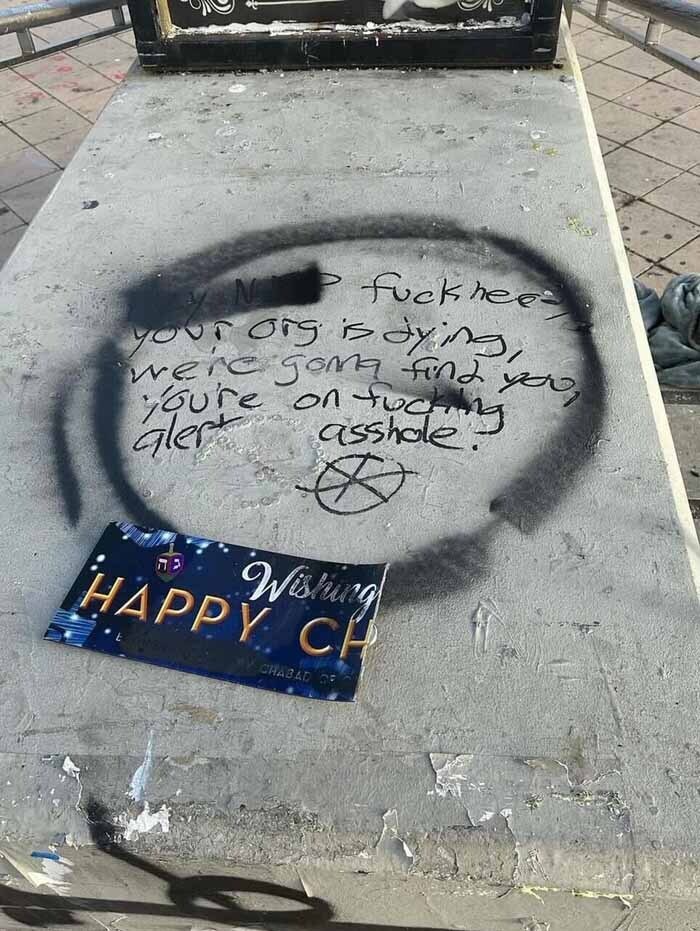 fuckhee
your org is dying,
we're gonna find you,
you're on fucking
alert asshole.
Wishing
HAPPY CH
BY CHABAD OF